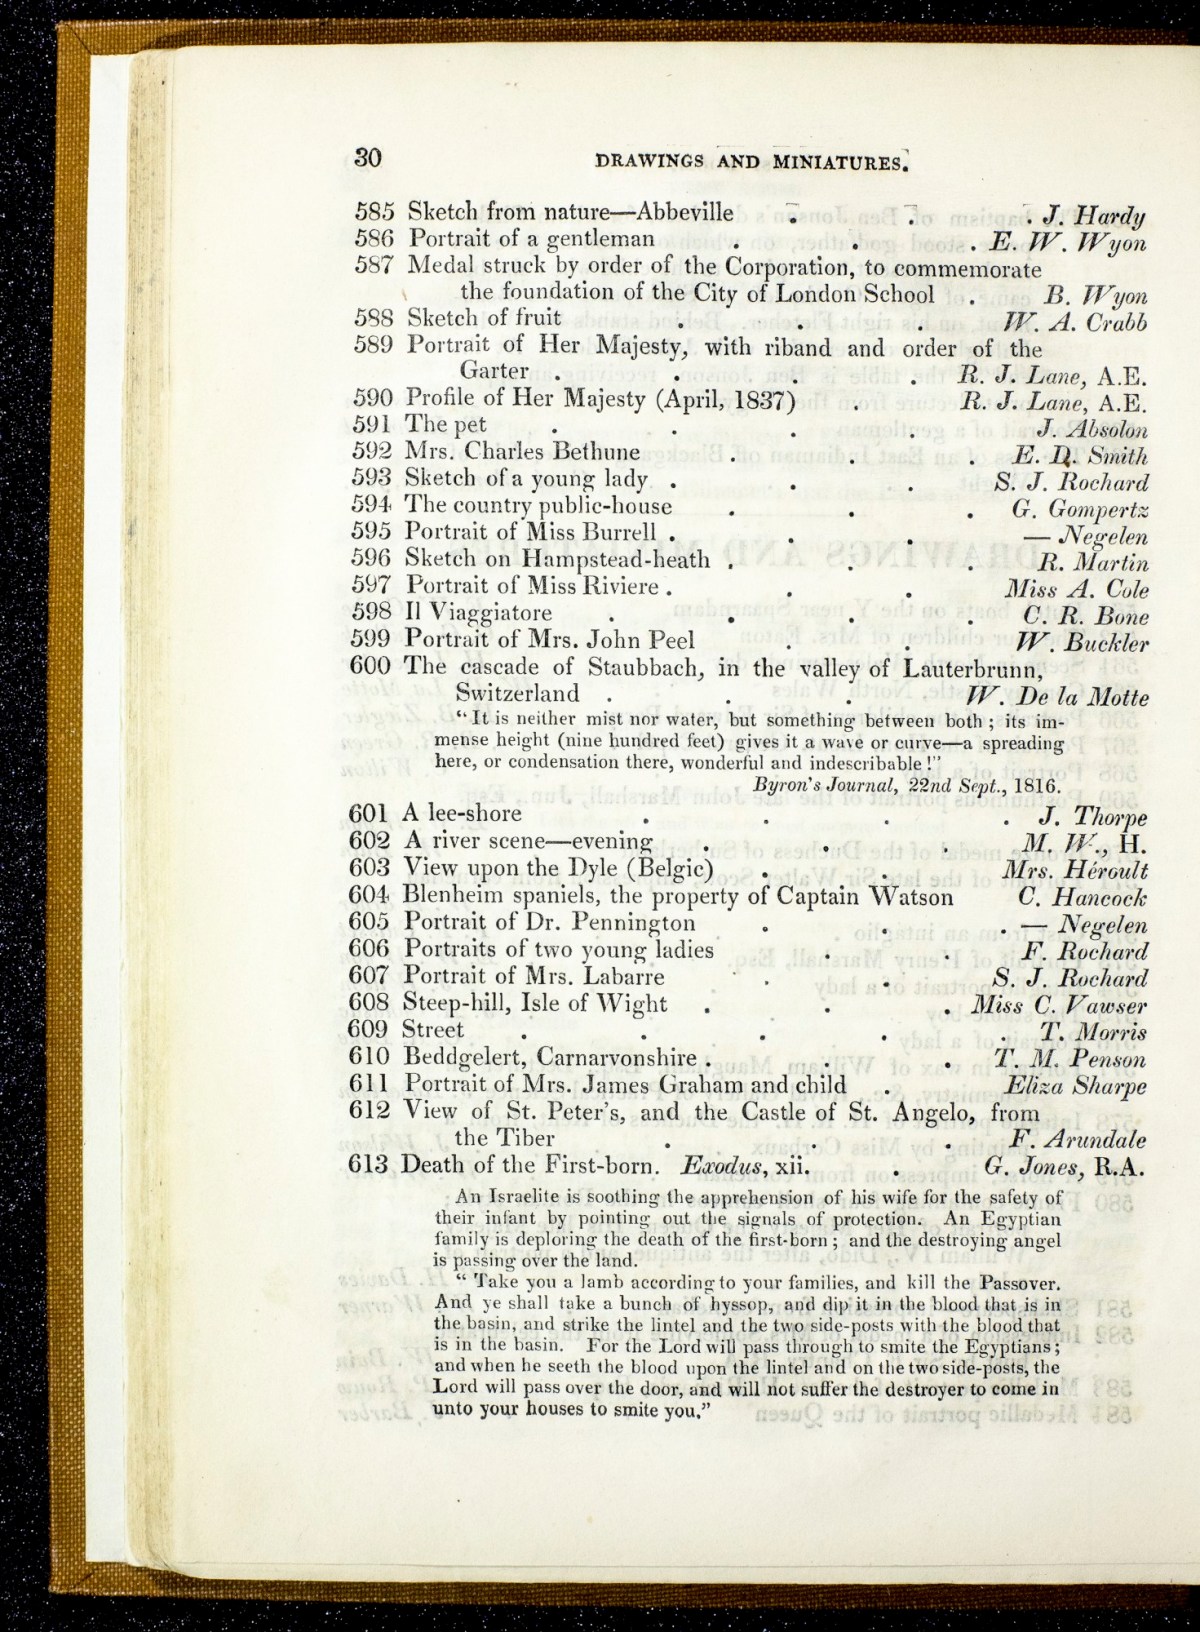 30 DRAWINGS AND MINIATURES.
585 Sketch from nature—Abbeville . . . J. Hardy
586 Portrait of a gentleman . . . E. W. Wyon
587 Medal struck by order of the Corporation, to commemorate
the foundation of the City of London School . B. Wyon
588 Sketch of fruit . . . W. A. Crabb
589 Portrait of Her Majesty, with riband and order of the
Garter . . . . R. J. Lane, A.E.
590 Profile of Her Majesty (April, 1837) . R. J. Lane, A.E.
591 The pet . . . . J. Absolon
592 Mrs. Charles Bethune . . . E. D. Smith
593 Sketch of a young lady . . . S. J. Rochard
594 The country public-house . . . G. Gompertz
595 Portrait of Miss Burrell . . . — Negelen
596 Sketch on Hampstead-heath . . . R. Martin
597 Portrait of Miss Riviere . . . Miss A. Cole
598 Il Viaggiatore . . . . C. R. Bone
599 Portrait of Mrs. John Peel . . W. Buckler
600 The cascade of Staubbach, in the valley of Lauterbrunn,
Switzerland . . . W. De la Motte
“It is neither mist nor water, but something between both; its im-
mense height (nine hundred feet) gives it a wave or curve—a spreading
here, or condensation there, wonderful and indescribable!”
Byron's Journal, 22nd Sept., 1816.
601 A lee-shore . . . . J. Thorpe
602 A river scene—evening . . . M. W., H.
603 View upon the Dyle (Belgic) . . Mrs. Héroult
604 Blenheim spaniels, the property of Captain Watson C. Hancock
605 Portrait of Dr. Pennington . . . — Negelen
606 Portraits of two young ladies . . F. Rochard
607 Portrait of Mrs. Labarre . . S. J. Rochard
608 Steep-hill, Isle of Wight . . . Miss C. Vawser
609 Street . . . . . T. Morris
610 Beddgelert, Carnarvonshire . . . T. M. Penson
611 Portrait of Mrs. James Graham and child . Eliza Sharpe
612 View of St. Peter's, and the Castle of St. Angelo, from
the Tiber . . . F. Arundale
613 Death of the First-born. Exodus, xii. . G. Jones, R.A.
An Israelite is soothing the apprehension of his wife for the safety of
their infant by pointing out the signals of protection. An Egyptian
family is deploring the death of the first-born; and the destroying angel
is passing over the land.
“Take you a lamb according to your families, and kill the Passover.
And ye shall take a bunch of hyssop, and dip it in the blood that is in
the basin, and strike the lintel and the two side-posts with the blood that
is in the basin. For the Lord will pass through to smite the Egyptians;
and when he seeth the blood upon the lintel and on the two side-posts, the
Lord will pass over the door, and will not suffer the destroyer to come in
unto your houses to smite you.”